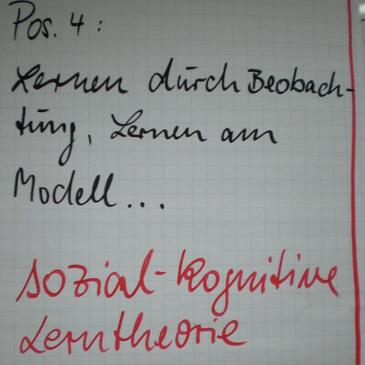 Pos. 4:
Lernen durch Beobach-
tung, Lernen am
Modell...
sozial-kognitive
Lerntheorie